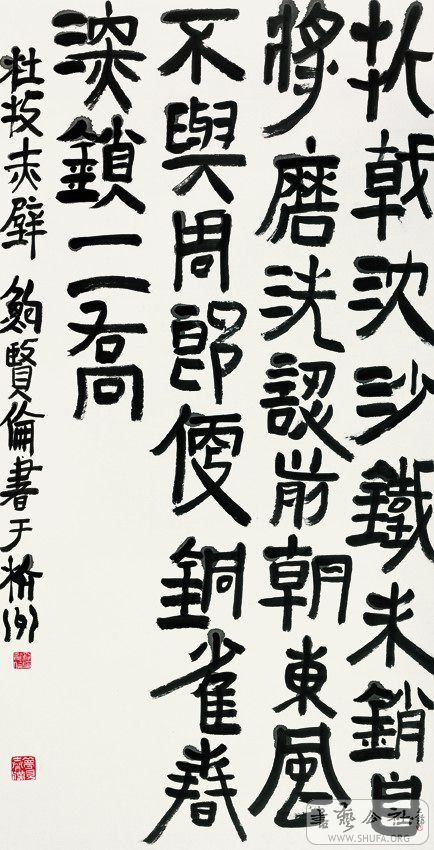 折戟沈沙鐵未銷自
將磨洗認前朝東風
不與周郎便銅雀春
深鎖二喬
杜牧赤壁 鮑賢倫書于
書藝公社
WWW.SHUFA.ORG